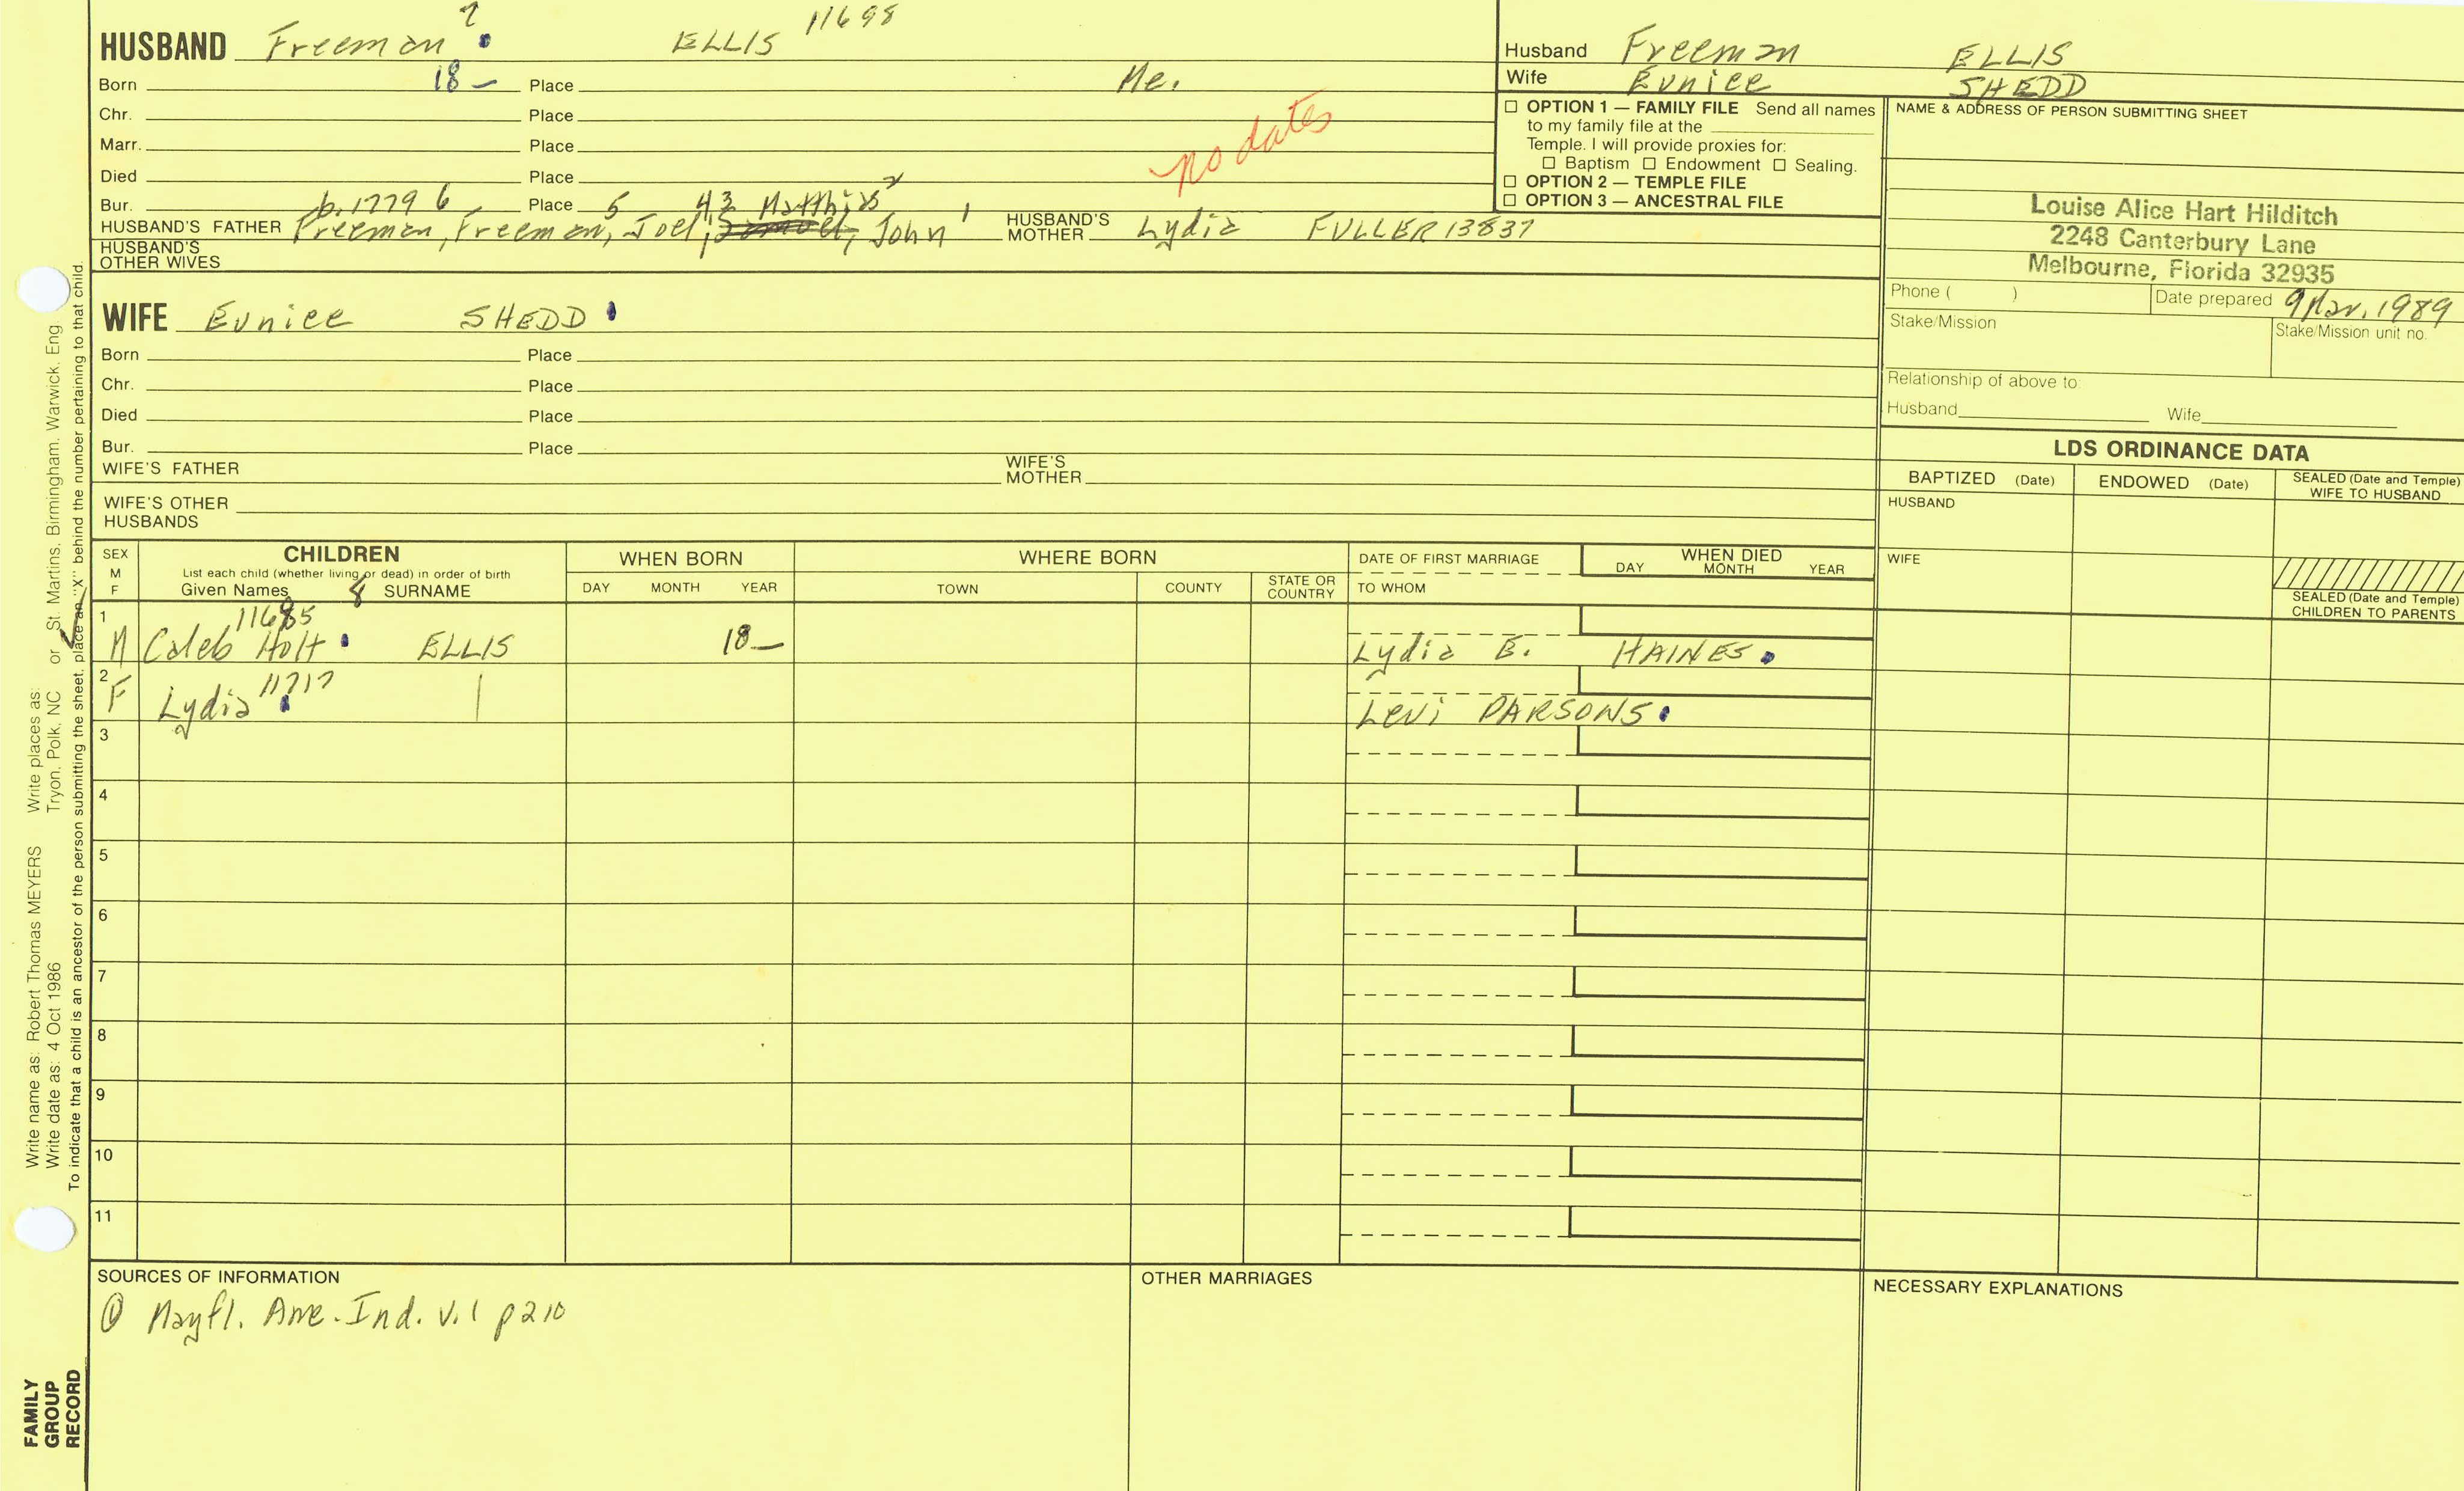 7
11698
HUSBAND Freeman ELLIS
Born 18— Place Me.
Chr. Place
Marr. Place
Died Place
no dates
Bur. Place
b. 1779 6 5 43 Matthias 2 1
HUSBAND'S FATHER Freeman, Freeman, Joel, John HUSBAND'S MOTHER Lydia FULLER 13837
HUSBAND'S OTHER WIVES
WIFE Eunice SHEDD
Born Place
Chr. Place
Died Place
Bur. Place
WIFE'S FATHER WIFE'S MOTHER
WIFE'S OTHER HUSBANDS
Husband Freeman ELLIS
Wife Eunice SHEDD
OPTION 1 — FAMILY FILE Send all names
to my family file at the
Temple. I will provide proxies for:
Baptism Endowment Sealing.
OPTION 2 — TEMPLE FILE
OPTION 3 — ANCESTRAL FILE
NAME & ADDRESS OF PERSON SUBMITTING SHEET
Louise Alice Hart Hilditch
2248 Canterbury Lane
Melbourne, Florida 32935
Phone ( ) Date prepared 9 Mar. 1989
Stake/Mission Stake/Mission unit no.
Relationship of above to:
Husband Wife
LDS ORDINANCE DATA
BAPTIZED (Date) ENDOWED (Date) SEALED (Date and Temple) WIFE TO HUSBAND
HUSBAND
WIFE
SEALED (Date and Temple) CHILDREN TO PARENTS
SEX M F
CHILDREN
List each child (whether living or dead) in order of birth
Given Names 8 SURNAME
WHEN BORN
DAY MONTH YEAR
WHERE BORN
TOWN COUNTY STATE OR COUNTRY
DATE OF FIRST MARRIAGE
TO WHOM
WHEN DIED
DAY MONTH YEAR
1 11685
M Caleb Holt ELLIS 18— Lydia E. HAINES
2 11717
F Lydia | Levi PARSONS
3
4
5
6
7
8
9
10
11
SOURCES OF INFORMATION
① Mayfl. Ane. Ind. v. 1 p210
OTHER MARRIAGES
NECESSARY EXPLANATIONS
Write name as: Robert Thomas MEYERS Write places as:
Write date as: 4 Oct 1986 Tryon, Polk, NC or St. Martins, Birmingham, Warwick, Eng.
To indicate that a child is an ancestor of the person submitting the sheet, place an "X" behind the number pertaining to that child.
FAMILY
GROUP
RECORD